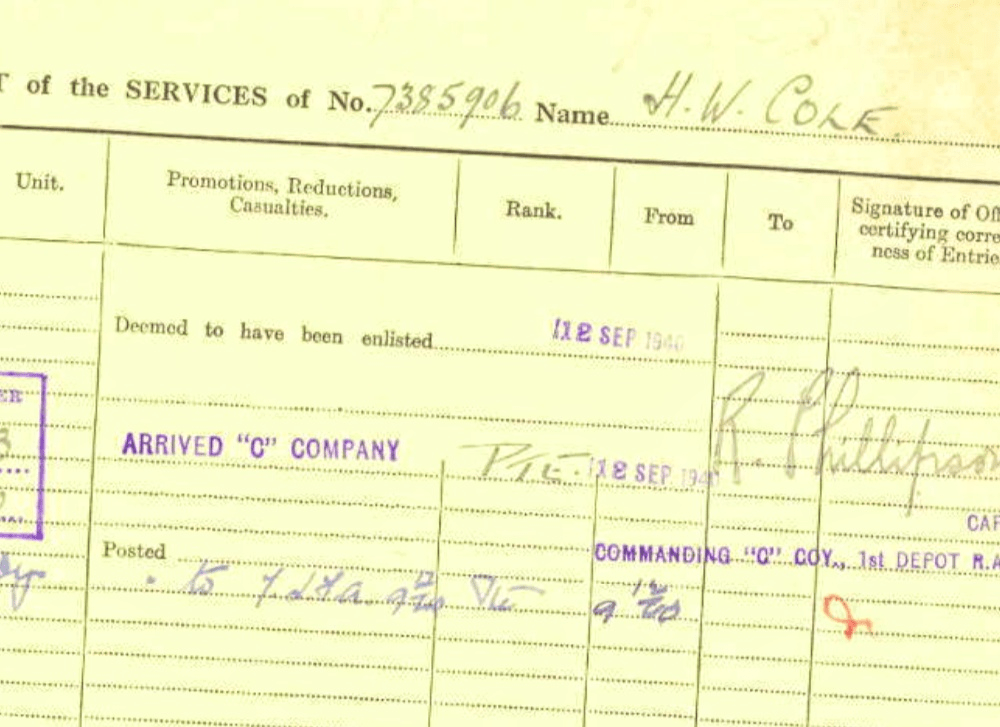 T of the SERVICES of No. 7385906 Name H. W. COLE.
Unit. Promotions, Reductions, Casualties. Rank. From To Signature of Off certifying corre ness of Entrie
Deemed to have been enlisted 12 SEP 1940
ER
3
ARRIVED "C" COMPANY PTE. 12 SEP 1940 R. Phillipson
CAP
Posted COMMANDING "C" COY., 1st DEPOT R.A
to Pte